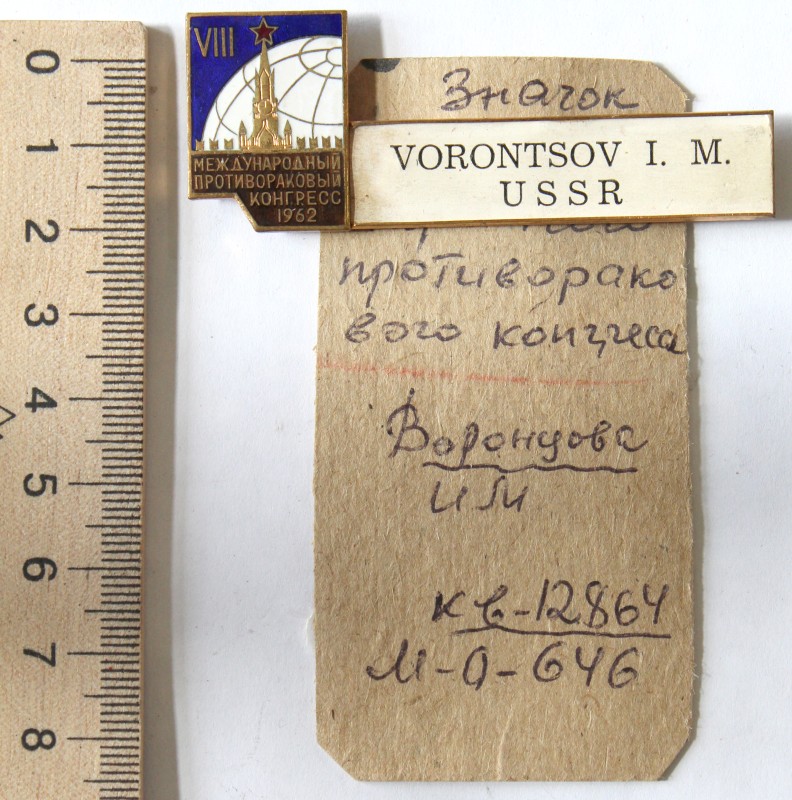 0
1
2
3
4
5
6
7
8
VIII
МЕЖДУНАРОДНЫЙ
ПРОТИВОРАКОВЫЙ
КОНГРЕСС
1962
VORONTSOV I. M.
USSR
Значок
противорако
вого конгресса
Воронцова
ИМ
кв-12864
М-0-646